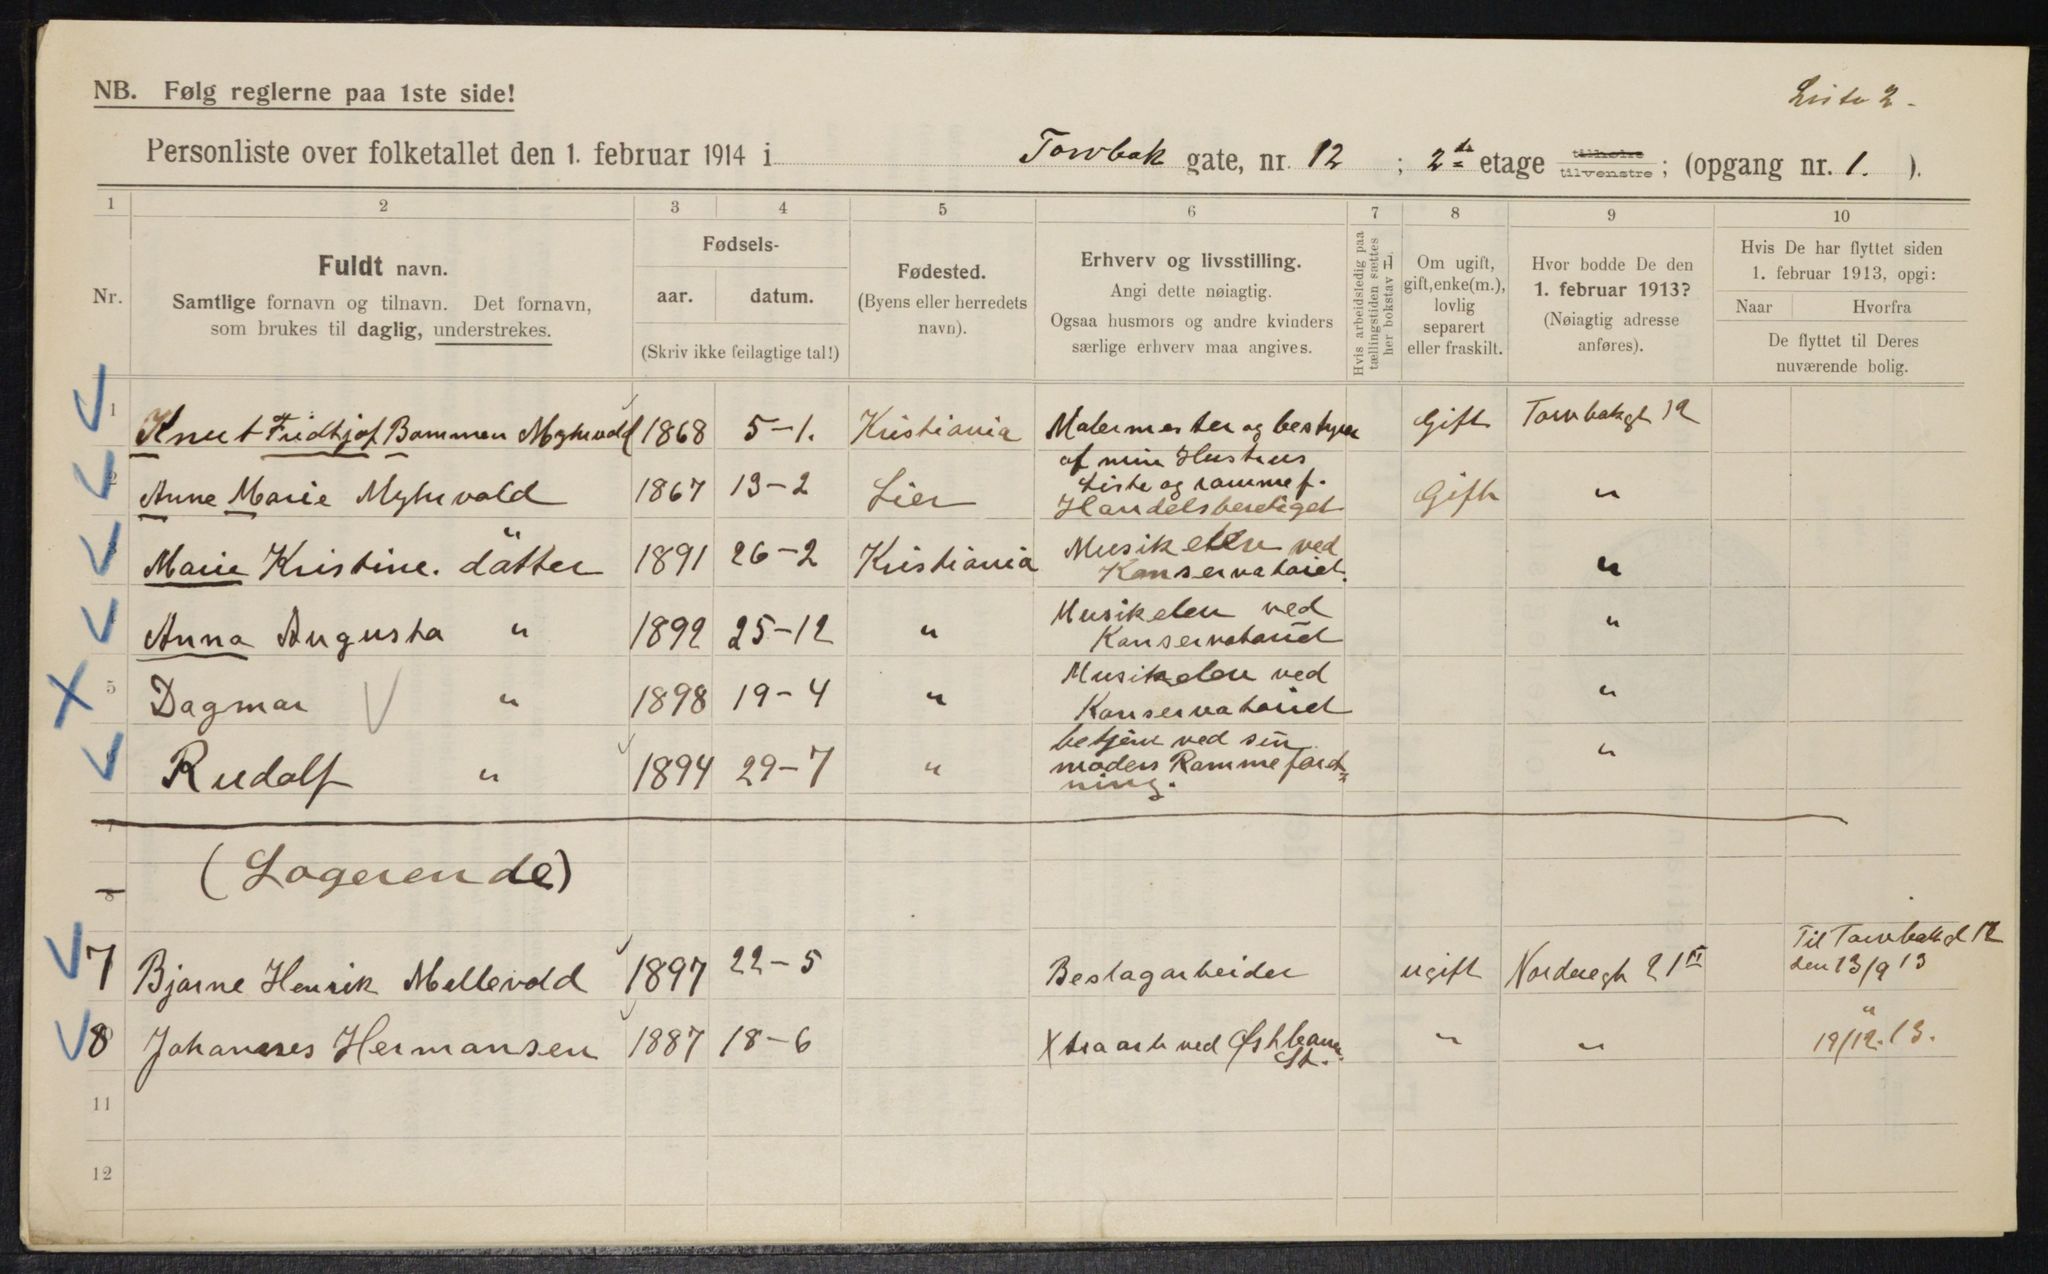 Liste 2.
NB. Følg reglerne paa 1ste side!
Personliste over folketallet den 1. februar 1914 i Torvbak gate, nr. 12 ; 2de etage tilhøire tilvenstre ; (opgang nr. 1. ).
1 2 3 4 5 6 7 8 9 10
Nr.
Fuldt navn.
Samtlige fornavn og tilnavn. Det fornavn,
som brukes til daglig, understrekes.
Fødsels-
aar. datum.
(Skriv ikke feilagtige tal!)
Fødested.
(Byens eller herredets
navn).
Erhverv og livsstilling.
Angi dette nøiagtig.
Ogsaa husmors og andre kvinders
særlige erhverv maa angives.
Hvis arbeidsledig paa
tællingstiden sættes
her bokstav L.
Om ugift,
gift, enke(m.),
lovlig
separert
eller fraskilt.
Hvor bodde De den
1. februar 1913?
(Nøiagtig adresse
anføres).
Hvis De har flyttet siden
1. februar 1913, opgi:
Naar Hvorfra
De flyttet til Deres
nuværende bolig.
1 Knut Fridtjof Bommen Myhrvold 1868 5-1. Kristiania Malermester og bestyrer Gift Torvbakgt 12
af min Hustrus
2 Anne Marie Myhrvold 1867 13-2 Lier Liste og ramme f. Gift "
Handelsberetiget
3 Marie Kristine. datter 1891 26-2 Kristiania Musik elev ved "
Konservatoriet.
Anna Augusta " 1892 25-12 " Musikelev ved "
Konservatoriet
5 Dagmar " 1898 19-4 " Musikelev ved "
Konservatoriet
Rudolf " 1894 29-7 " betjent ved sin "
moders Rammeforret-
ning.
7
(Logerende)
8
7 Bjarne Henrik Mellevold 1897 22-5 Beslagarbeider ugift Norderegt 21 II Til Torvbakgt 12
den 13/9 13
8 Johannes Hermansen 1887 18-6 Xtraarb ved Østbane " " "
St. 19/12. 13.
11
12